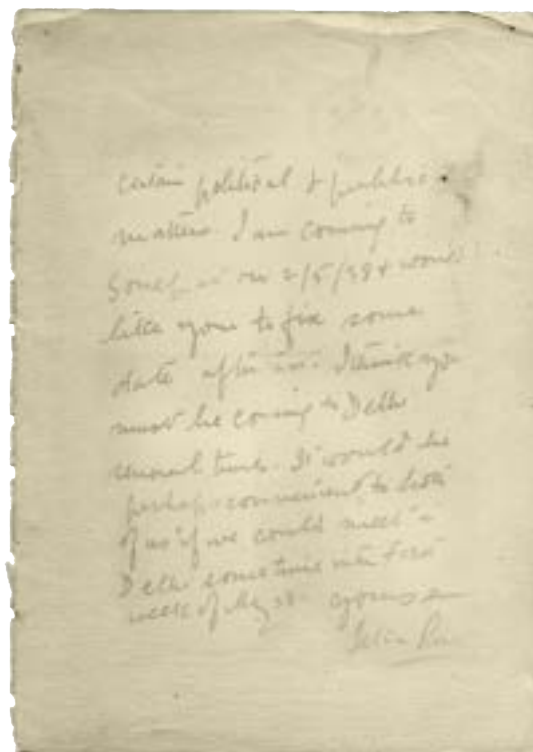 certain political & public
matters. I am coming to
on 2/5/38 & would
like you to fix some
date after . I think you
must be coming to Delhi
several times. It would be
perhaps convenient to both
of us if we could meet in
Delhi sometime in the first
week of May 38. yours sn
Ram